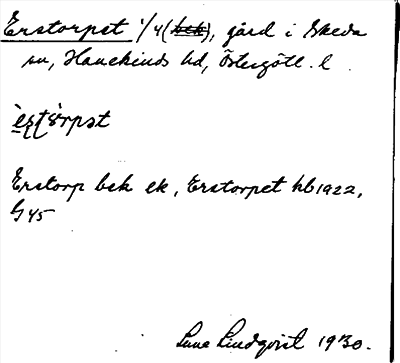 Erstorpet 1/4 (bek), gård i Skeda
sn, Hanekinds hd, Östergötl. l.
Erstorp bek ek, Erstorpet hb 1922,
G 45
Sune Lindqvist 1930.